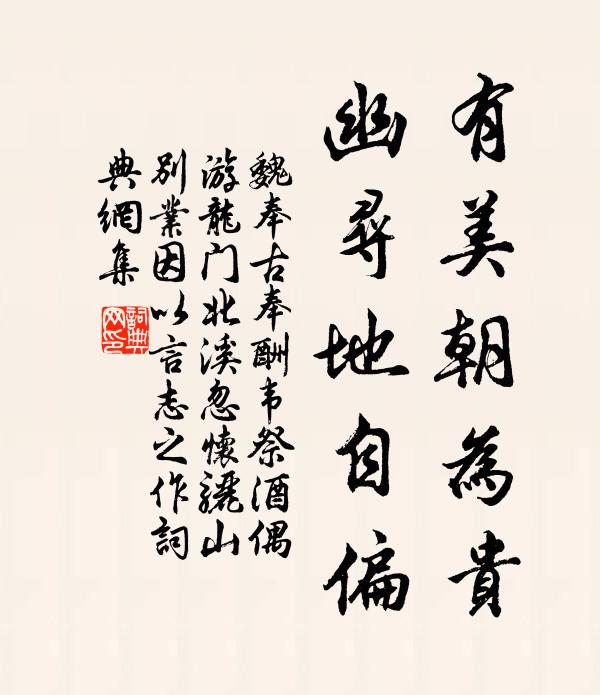 有美朝為貴
幽尋地自偏
魏奉古奉酬韦祭酒偶
游龍门北溪忽懷驪山
別業因以言志之作詞
典網集
詞典
网印